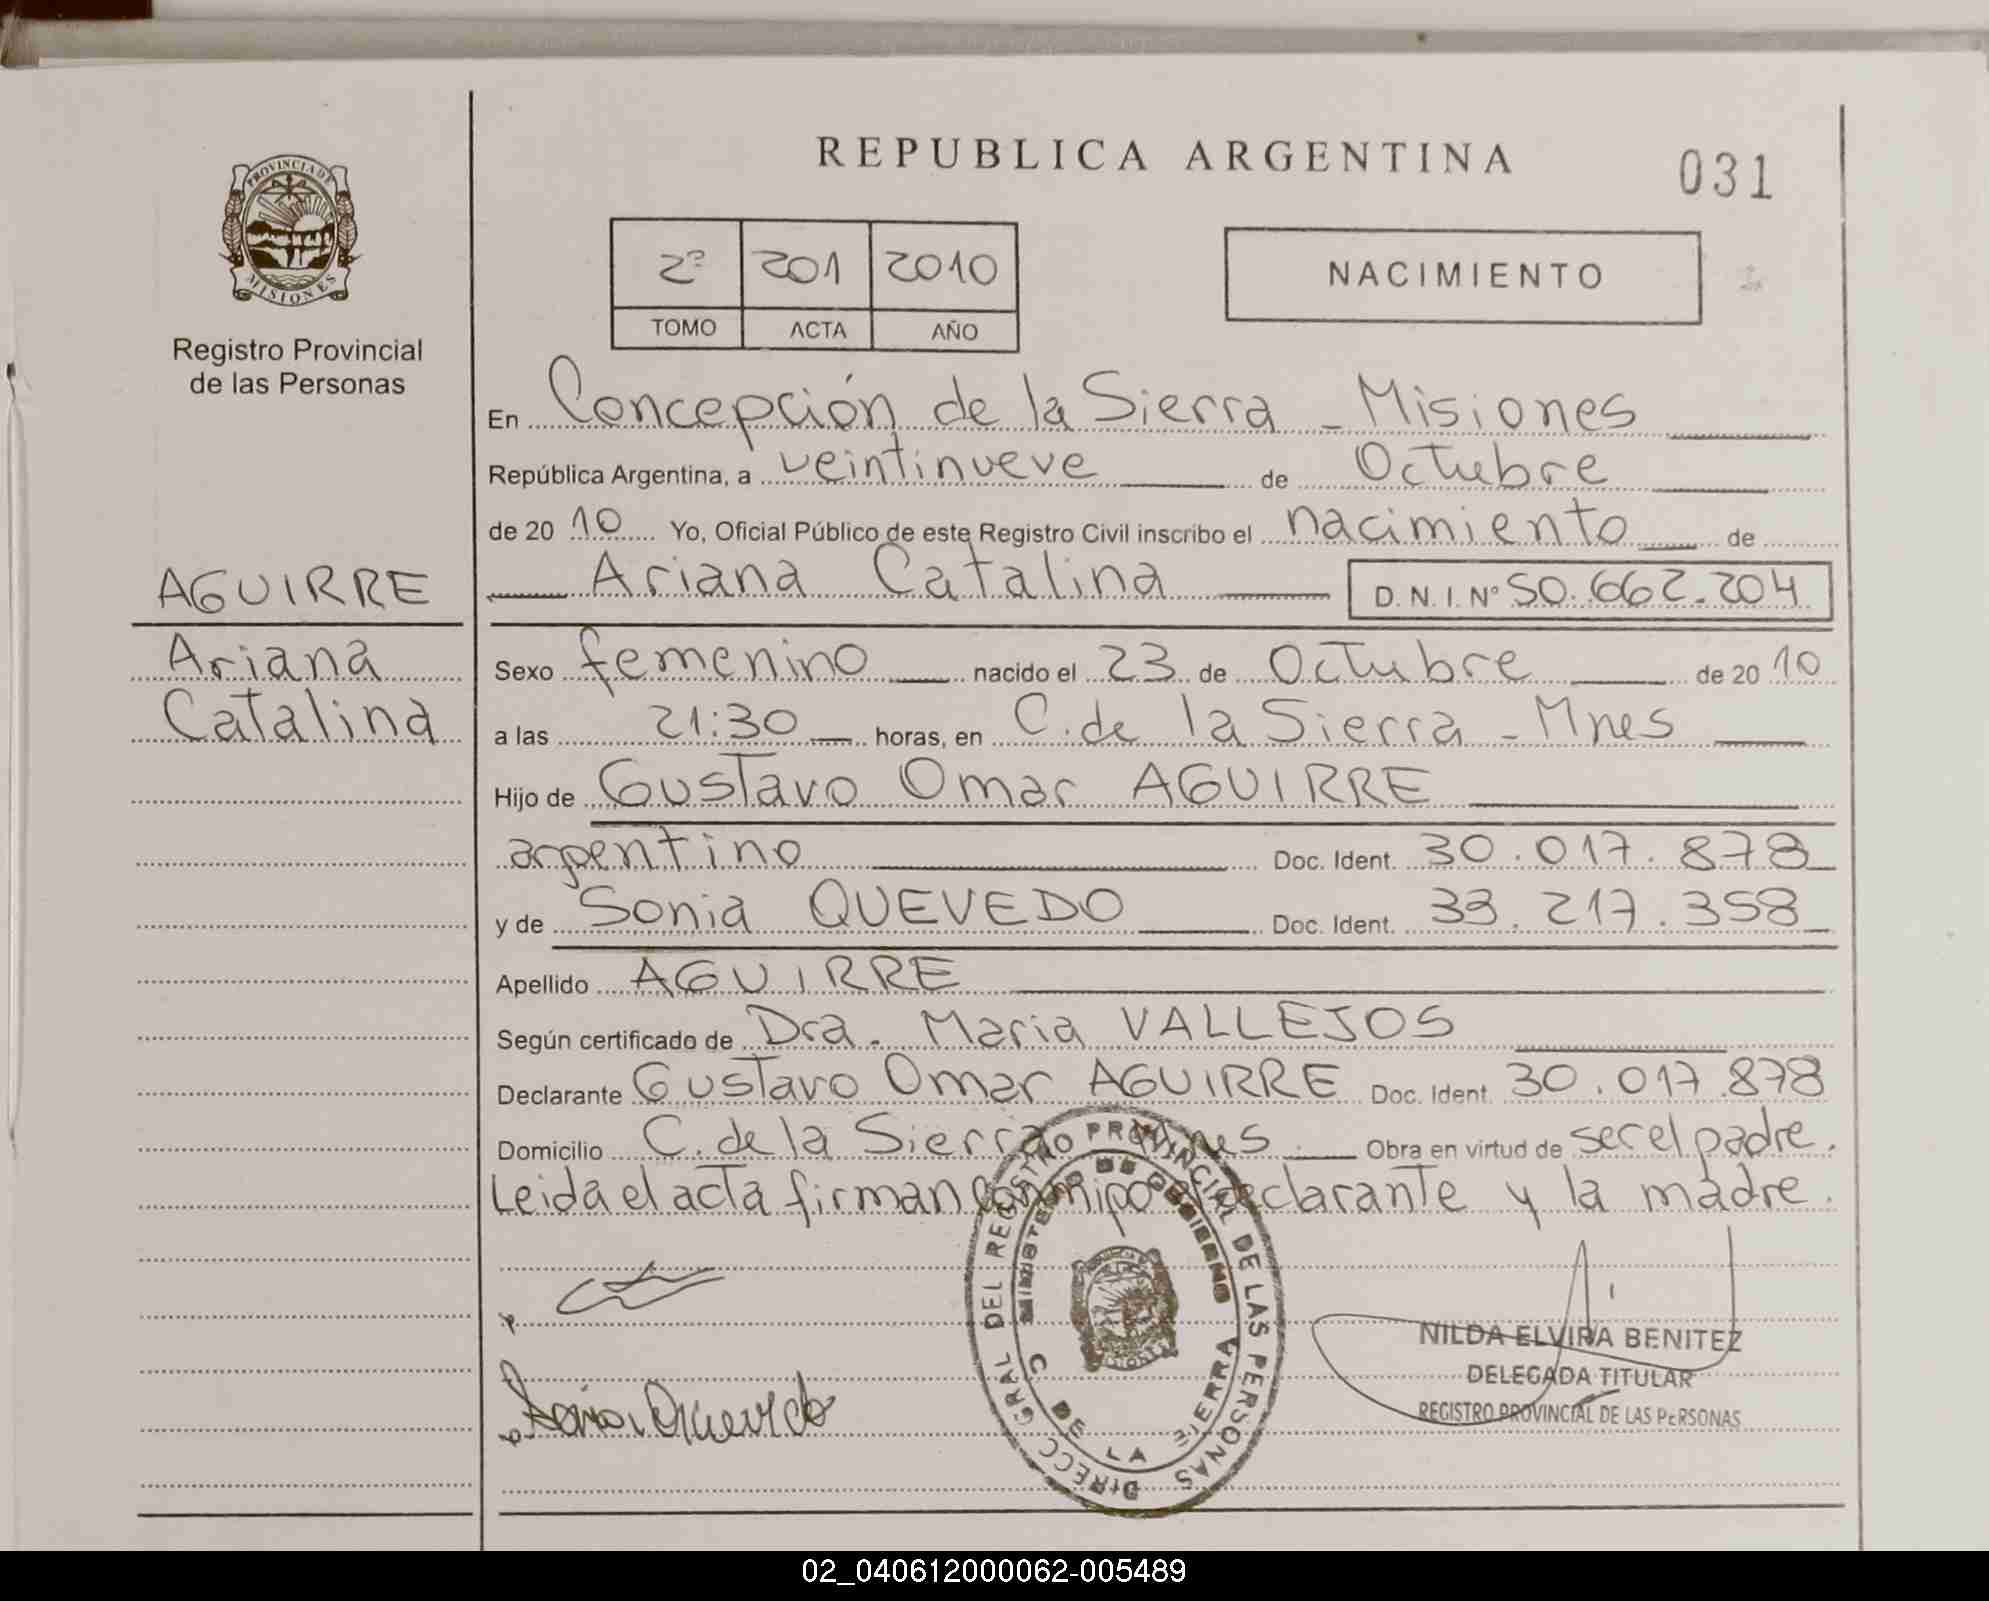 PROVINCIA DE
MISIONES
Registro Provincial
de las Personas
AGUIRRE
Ariana
Catalina
REPUBLICA ARGENTINA
031
2º 201 2010
TOMO ACTA AÑO
NACIMIENTO
En Concepción de la Sierra - Misiones
República Argentina, a veintinueve de Octubre
de 2010 Yo, Oficial Público de este Registro Civil inscribo el nacimiento de
Ariana Catalina D.N.I. Nº 50.662.204
Sexo femenino nacido el 23 de Octubre de 2010
a las 21:30 horas, en C. de la Sierra - Mnes
Hijo de Gustavo Omar AGUIRRE
argentino Doc. Ident. 30.017.878
y de Sonia QUEVEDO Doc. Ident. 33.217.358
Apellido AGUIRRE
Según certificado de Dra. Maria VALLEJOS
Declarante Gustavo Omar AGUIRRE Doc. Ident. 30.017.878
Domicilio C. de la Sierra Mnes Obra en virtud de ser el padre.
Leida el acta firman conmigo el declarante y la madre.
DIRECC GRAL DEL REGISTRO PROVINCIAL DE LAS PERSONAS
MINISTERIO DE GOBIERNO
C DE LA SIERRA
MISIONES
Sonia Quevedo
NILDA ELVIRA BENITEZ
DELEGADA TITULAR
REGISTRO PROVINCIAL DE LAS PERSONAS
02_040612000062-005489